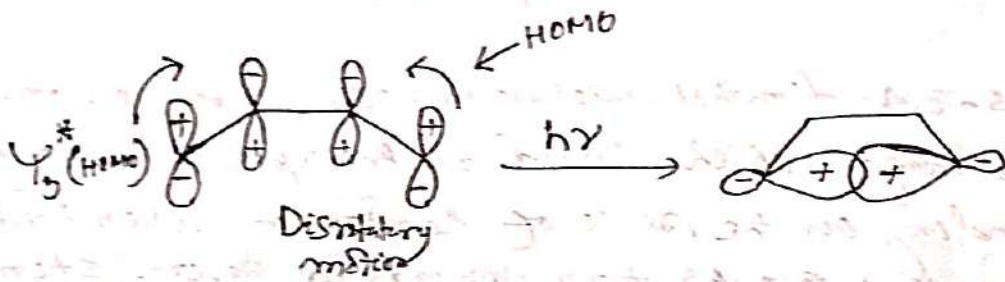 HOMO
Ψ₃*(HOMO)
+ − − +
− + + −
hν
− + + −
Disrotatory
motion